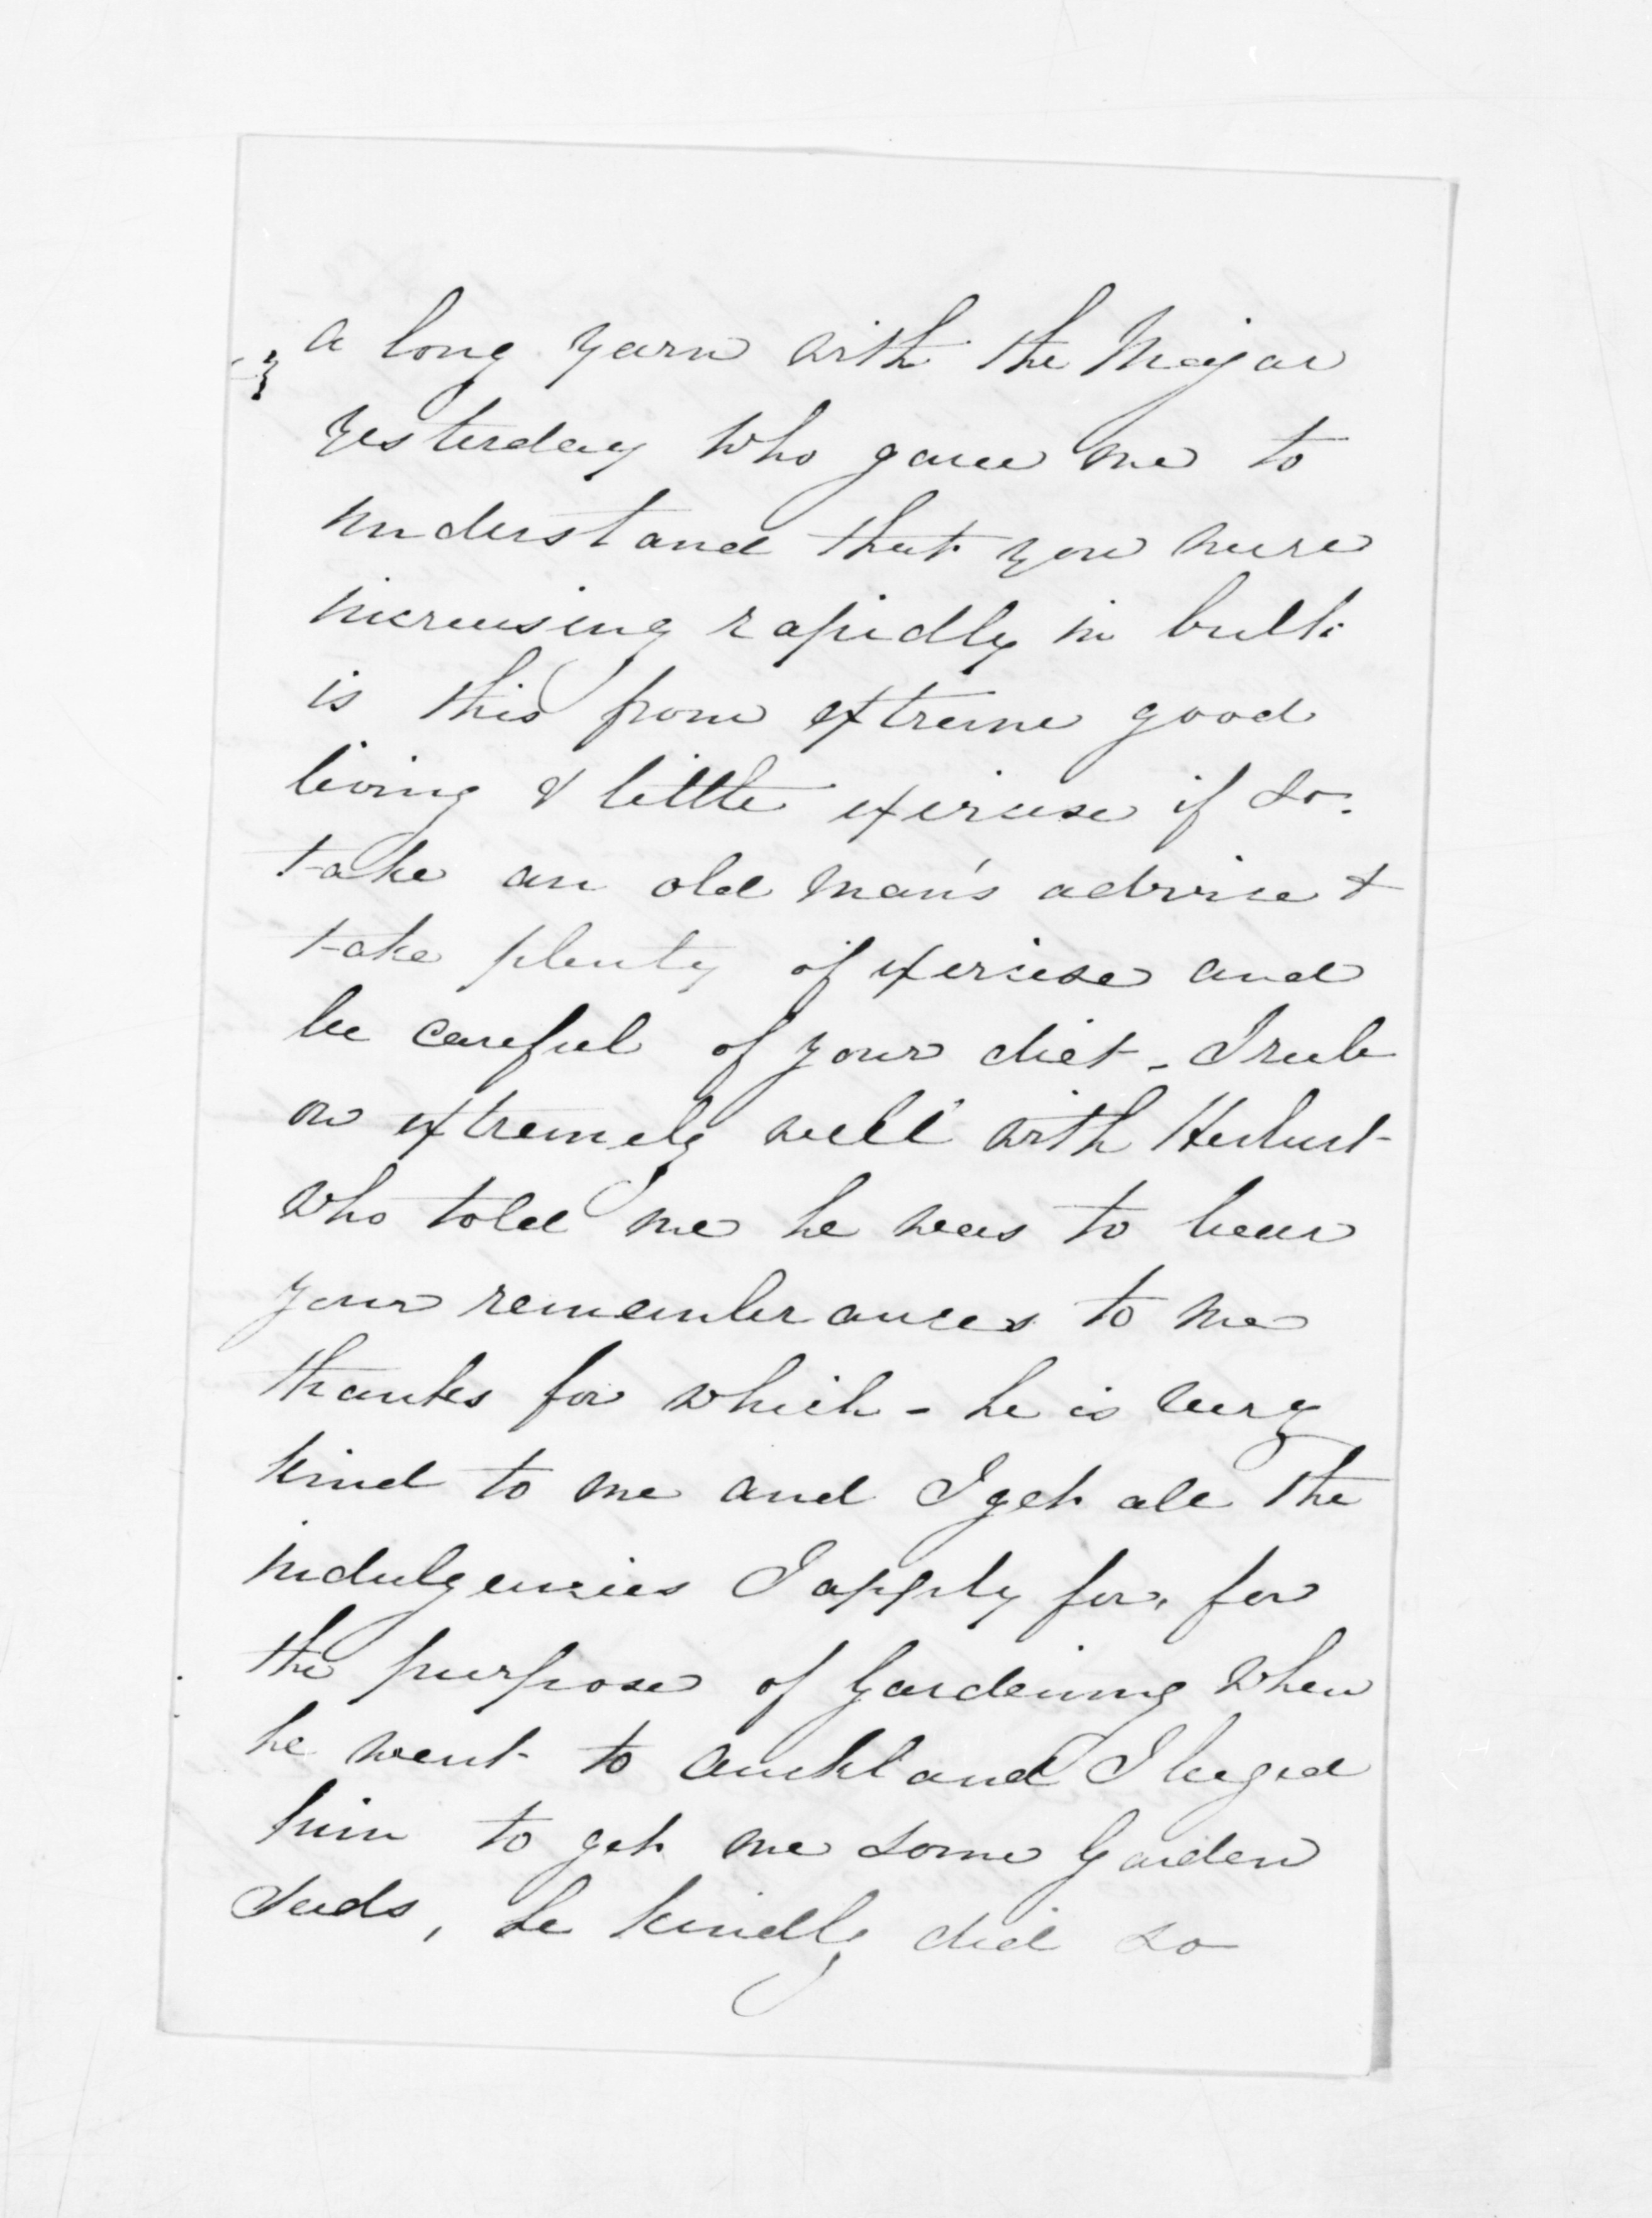 a long yarn with the Major
yesterday who gave me to
understand that you were
increasing rapidly in bulk
is this from extreme good
living & little exercise if so.
take an old man's advice &
take plenty of exercise and
be careful of your diet - I rub
on extremely well with Herbert
who told me he was to bear
your remembrances to me
thanks for which - he is very
kind to me and I get all the
indulgencies I apply for, for
the purpose of Gardening when
he went to Auckland I beged
him to get me some Garden
Seeds, he kindly did so